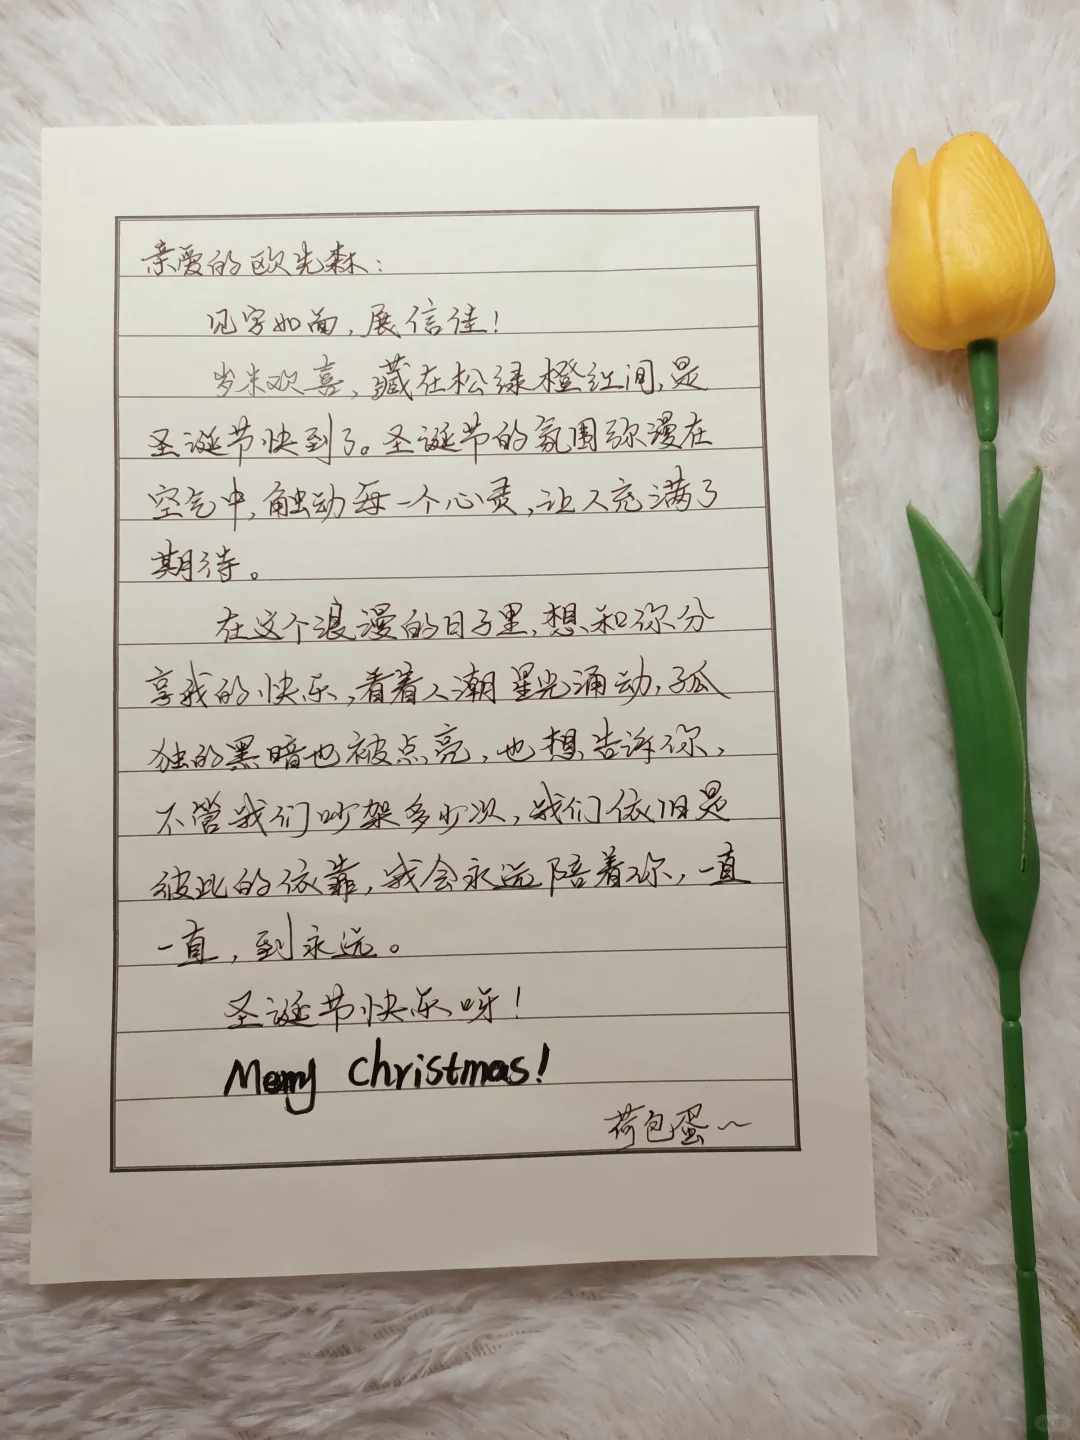 亲爱的欧先森：
见字如面，展信佳！
岁末欢喜，藏在松绿橙红间，是
圣诞节快到了。圣诞节的氛围弥漫在
空气中，触动每一个心灵，让人充满了
期待。
在这个浪漫的日子里，想和你分
享我的快乐，看着人潮星光涌动，孤
独的黑暗也被点亮，也想告诉你，
不管我们吵架多少次，我们依旧是
彼此的依靠，我会永远陪着你，一直
一直，到永远。
圣诞节快乐呀！
Merry Christmas!
荷包蛋～